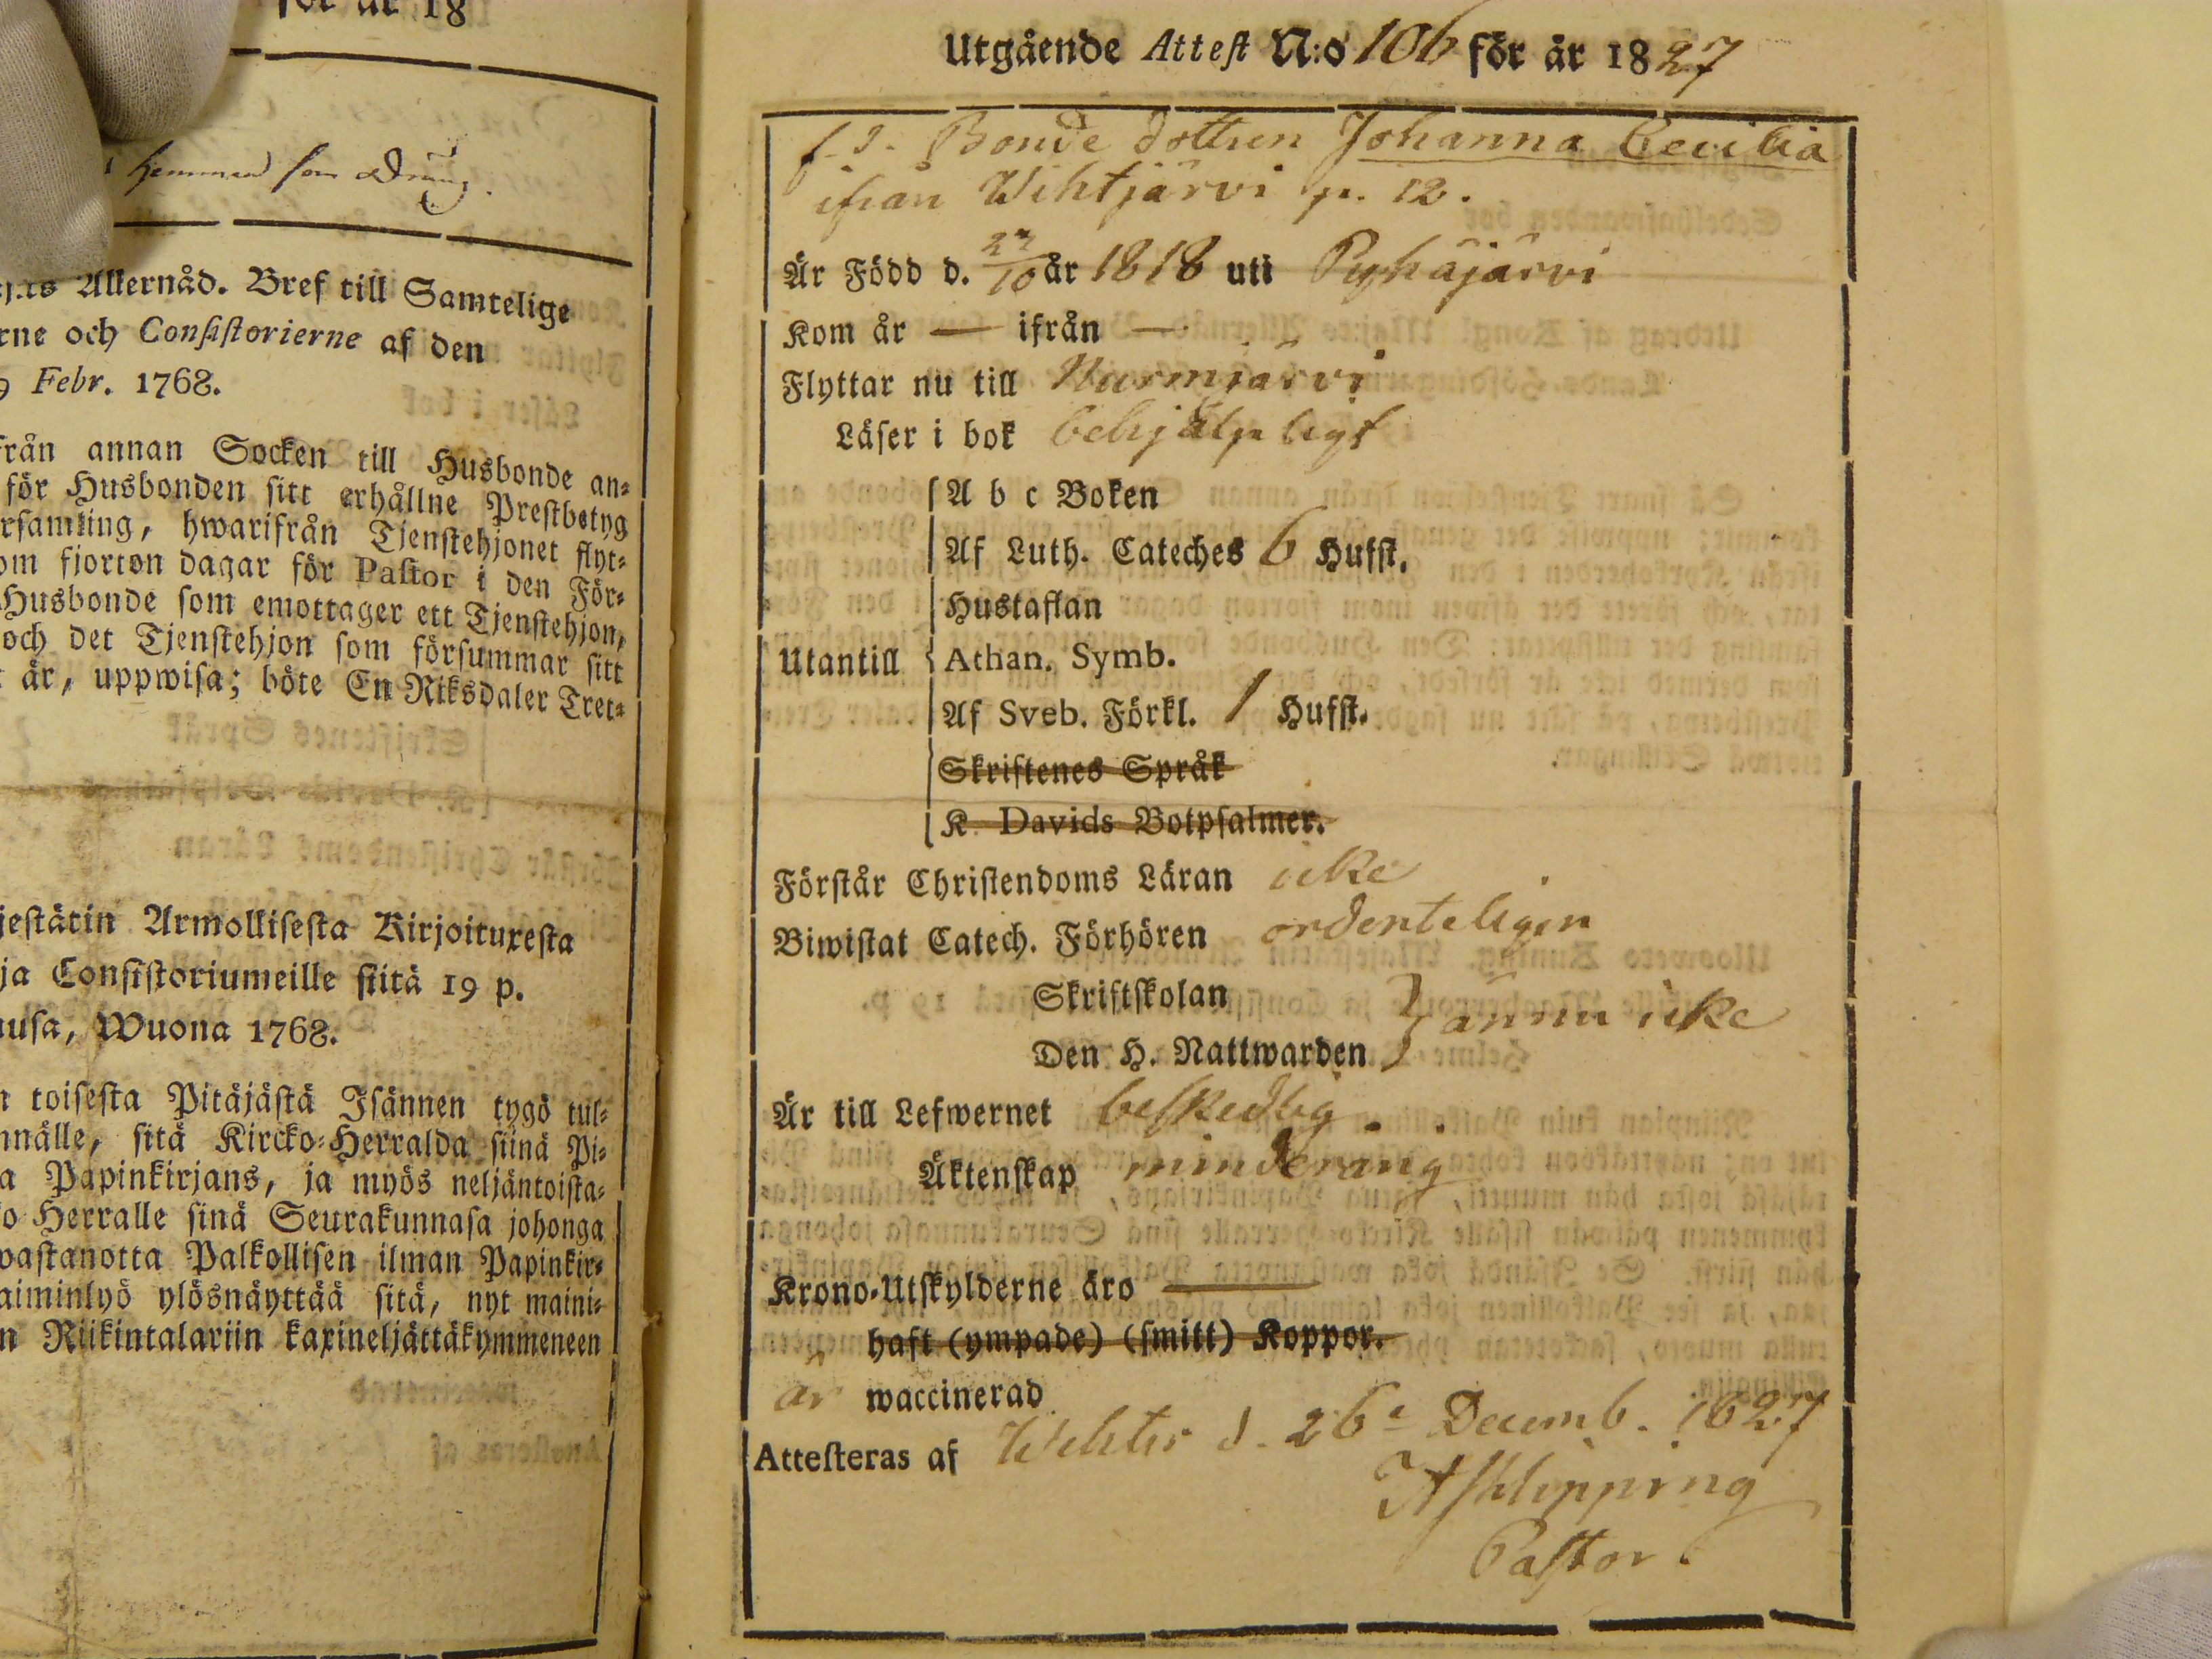 för år 18
hemman som Dräng.
Allernåd. Bref till Samtelige
rne och Consistorierne af den
9 Febr. 1768.
från annan Socken till Husbonde an-
för Husbonden sitt erhållne Prestbetyg
rsamling, hwarifrån Tjenstehjonet flyt-
om fjorton dagar för Pastor i den För-
Husbonde som emottager ett Tjenstehjon,
och det Tjenstehjon som försummar sitt
år, uppwisa; böte En Riksdaler Tret-
jestätin Armollisesta Kirjoituxesta
ja Consistoriumeille siitä 19 p.
usa, Wuona 1768.
n toisesta Pitäjästä Isännen tygö tul-
nnälle, sitä Kircko-Herralda siinä Pi-
a Papinkirjans, ja myös neljäntoista-
o Herralle sinä Seurakunnasa johonga
wastanotta Palkollisen ilman Papinkir-
aiminlyö ylösnäyttää sitä, nyt maini-
n Riikintalariin kaxineljättäkymmeneen
Utgående Attest N:o 106 för år 1827
f.d. Bonde dottren Johanna Cecilia
ifrån Wihtjärvi p. 12.
Är Född d. 27/10 år 1818 uti Pyhäjärvi
Kom år — ifrån —
Flyttar nu till Nurmijärvi
Läser i bok behjälpligt
A b c Boken
Af Luth. Cateches 6 Hufst.
Hustaflan
Utantill Athan. Symb.
Af Sveb. Förkl. 1 Hufst.
Skriftenes Språk
K. Davids Botpsalmer.
Förstår Christendoms Läran icke
Biwistat Catech. Förhören ordenteligen
Skriftskolan
ännu icke
Den H. Nattwarden
Är till Lefwernet beskedlig
Äktenskap minderårig
Krono-Utskylderne äro —
haft (ympade) (smitt) Koppor.
är waccinerad
Attesteras af Wichtis d. 26e Decemb. 1827
Pastor